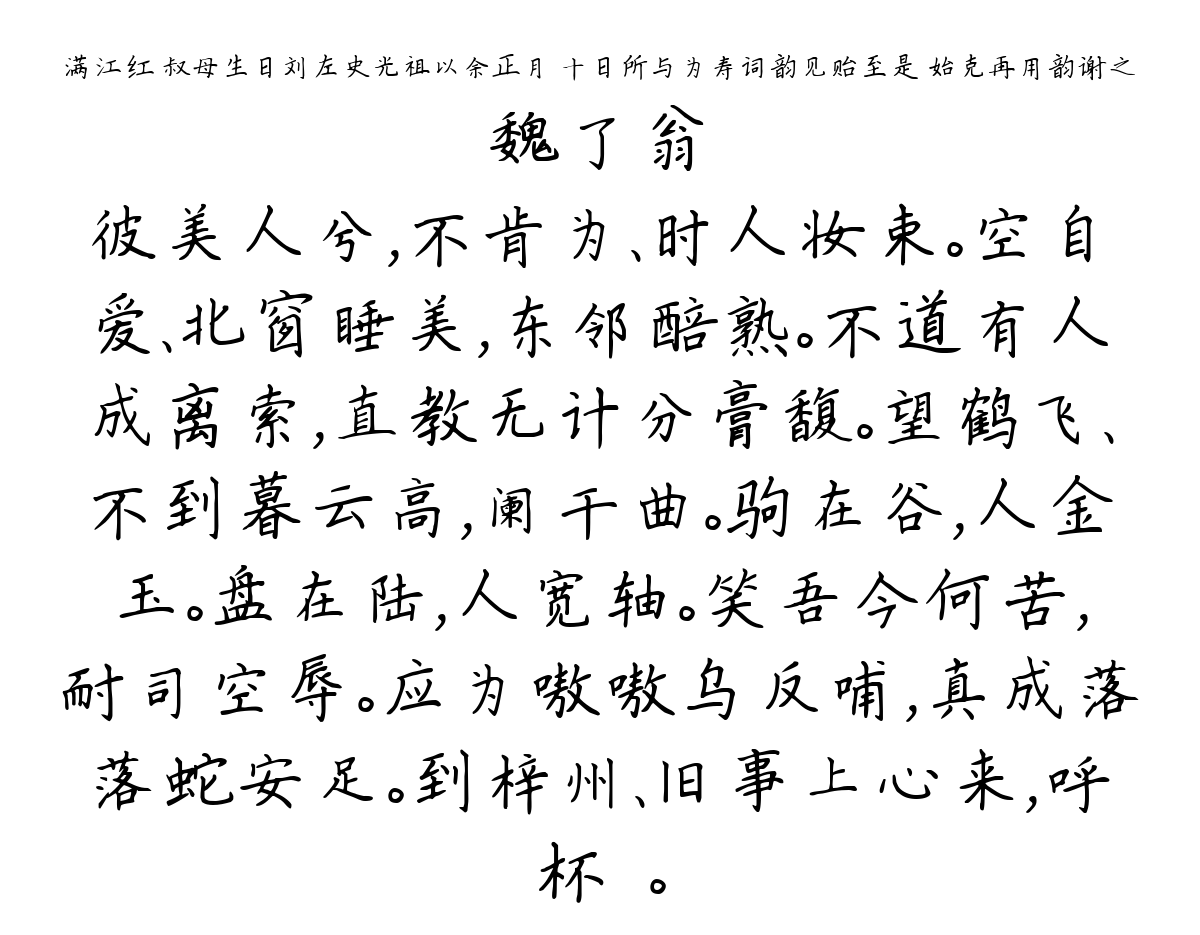 满江红 叔母生日刘左史光祖以余正月 十日所与为寿词韵见贻至是 始克再用韵谢之
魏了翁
彼美人兮,不肯为、时人妆束。空自
爱、北窗睡美,东邻醅熟。不道有人
成离索,直教无计分膏馥。望鹤飞、
不到暮云高,阑干曲。驹在谷,人金
玉。盘在陆,人宽轴。笑吾今何苦,
耐司空辱。应为嗷嗷乌反哺,真成落
落蛇安足。到梓州、旧事上心来,呼
杯 。